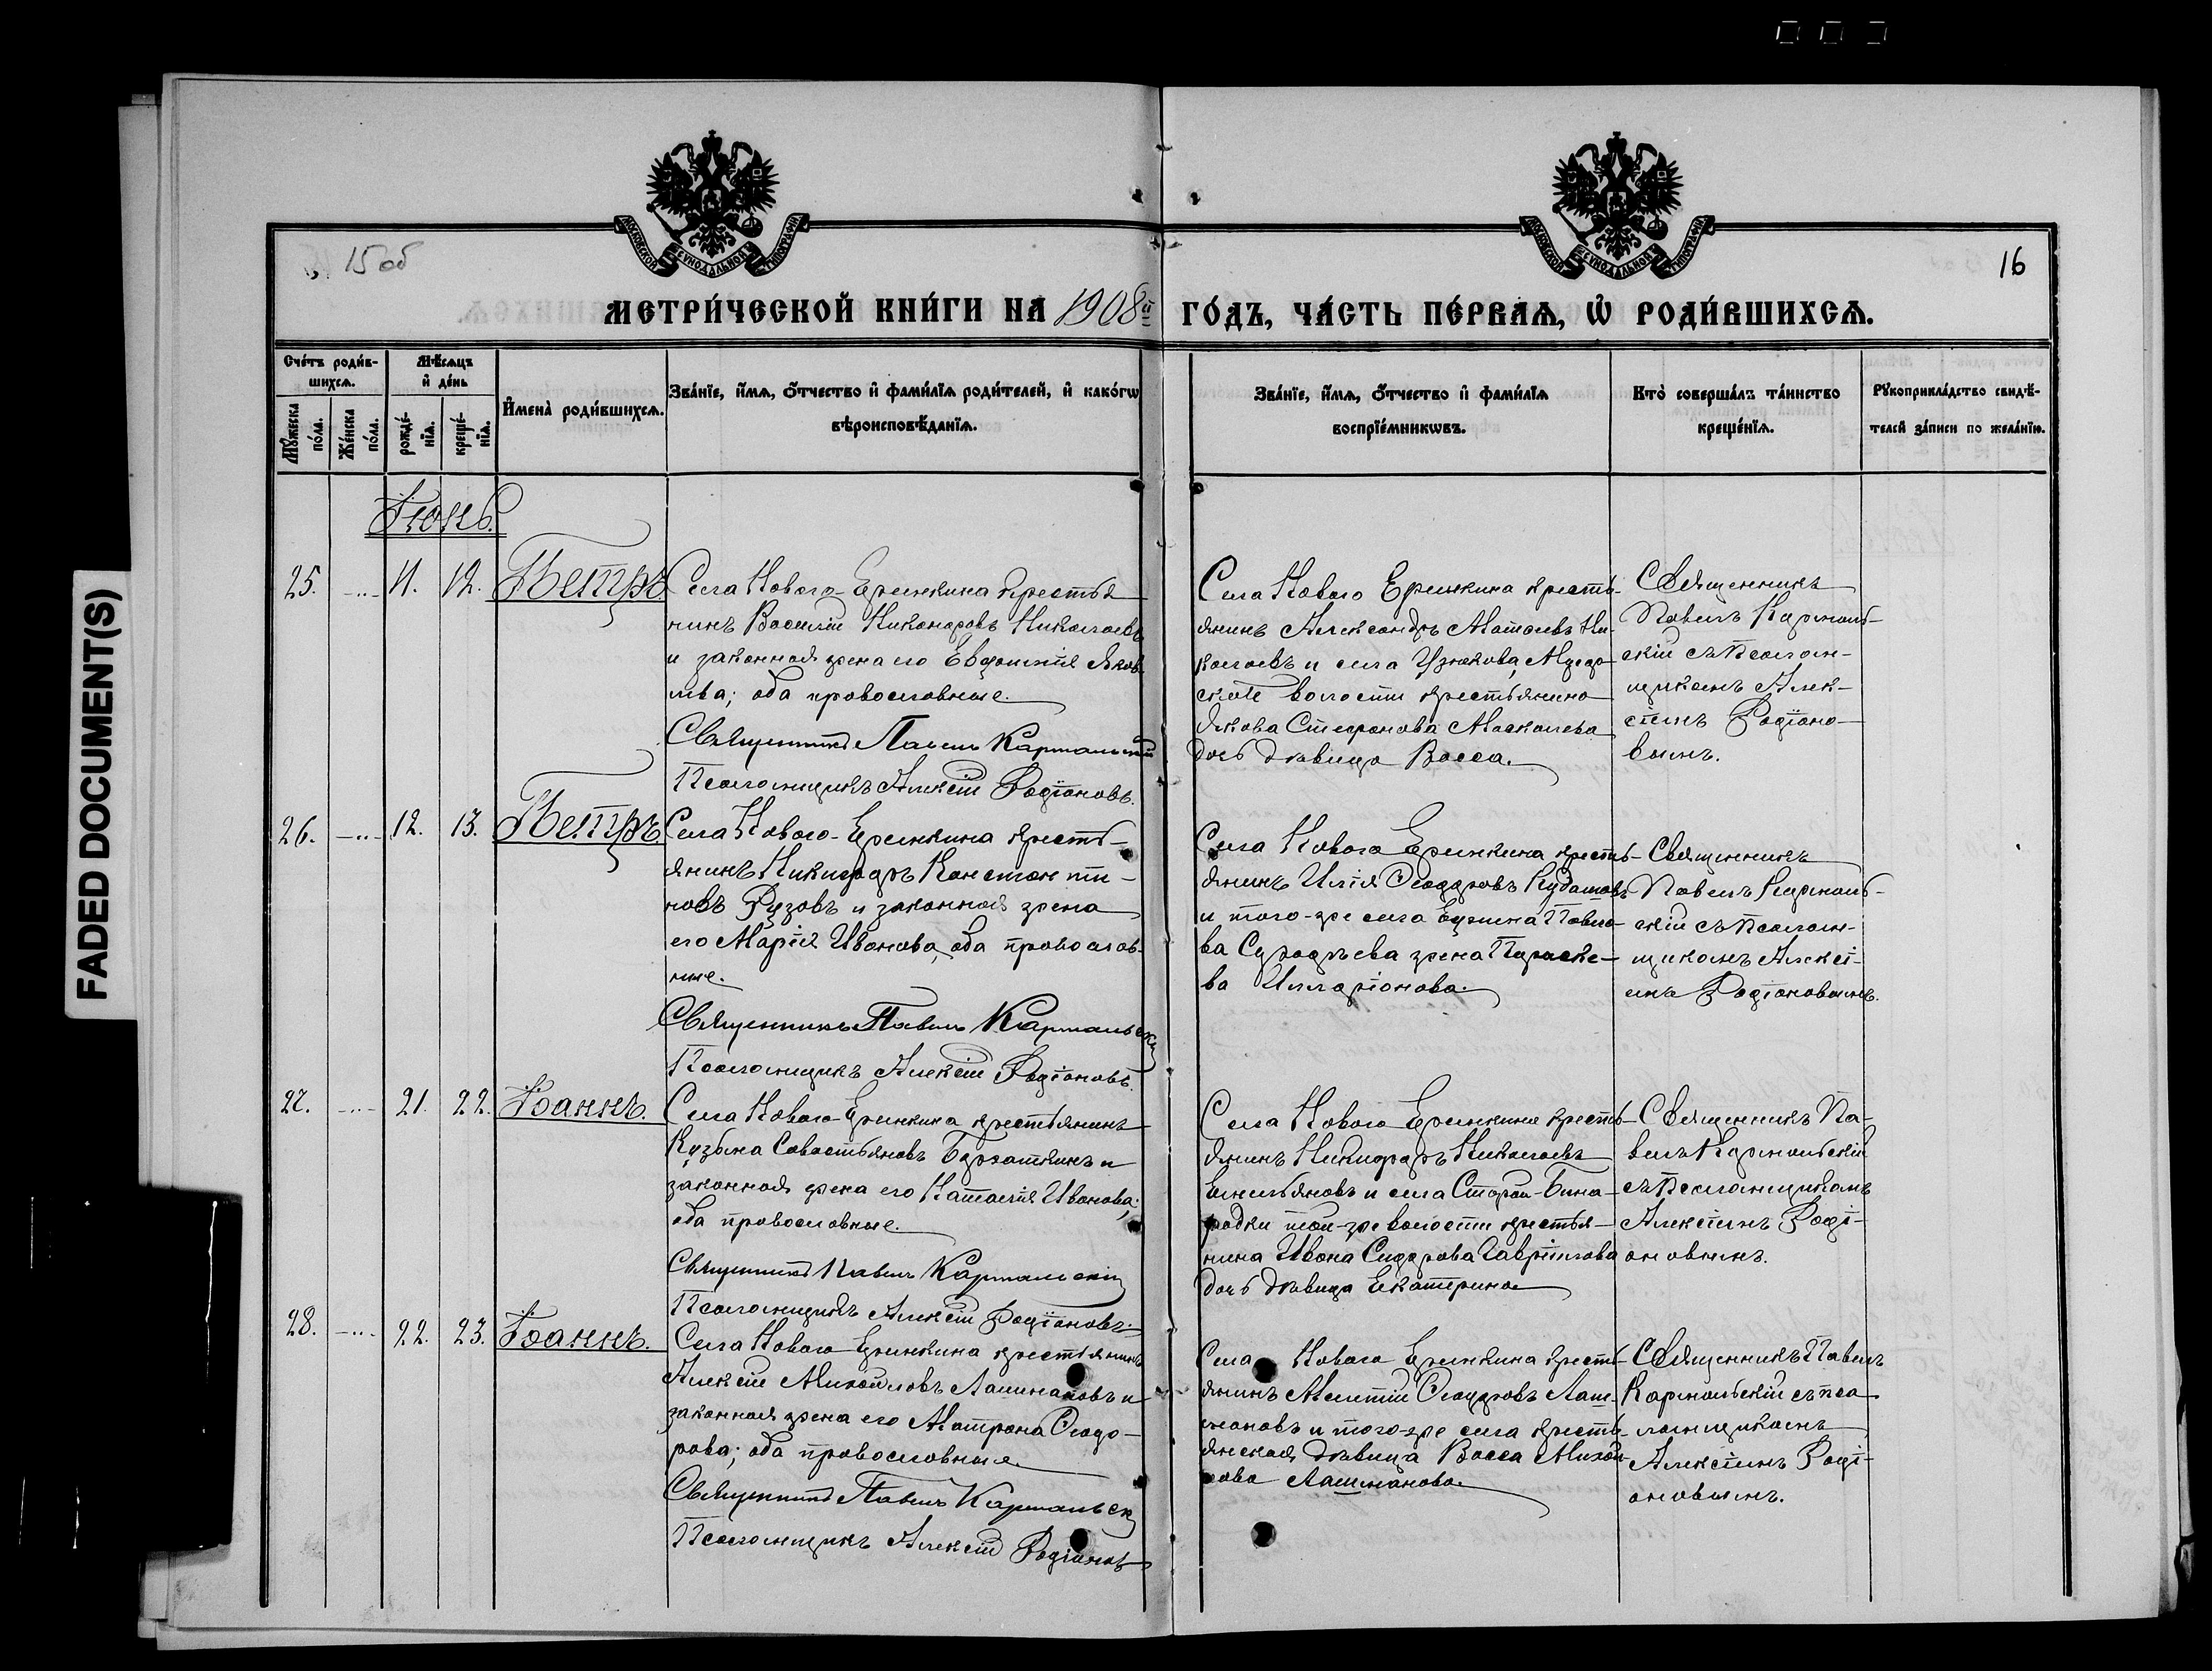 FADED DOCUMENT(S)
15 об
16
МОСКОВСКОЙ СѴНОДАЛЬНОЙ ТИПОГРАФІИ
МОСКОВСКОЙ СѴНОДАЛЬНОЙ ТИПОГРАФІИ
МЕТРИ́ЧЕСКОЙ КНИ́ГИ НА 1908й ГО́ДЪ, ЧА́СТЬ ПЕ́РВАѦ, Ѡ҆ РОДИ́ВШИХСѦ.
Сче́тъ роди́в-
шихсѧ.
Мꙋ́жеска
по́ла.
Же́нска
по́ла.
Мѣ́сѧцъ
и҆ де́нь
рожде́-
нїѧ.
креще́-
нїѧ.
И҆мена̀ роди́вшихсѧ.
Зва́нїе, и҆́мѧ, ѻ҆́тчество и҆ фами́лїѧ роди́телей, и҆ како́гѡ
вѣроисповѣ́данїѧ.
Зва́нїе, и҆́мѧ, ѻ҆́тчество и҆ фами́лїѧ
воспрїе́мникѡвъ.
Кто̀ соверша́лъ та́инство
креще́нїѧ.
Рꙋкоприкла́дство свидѣ́-
телей за́писи по жела́нїю.
Іюнь.
25. -..- 11. 12. Петръ
Села Нового-Еремкина крестья
нинъ Василій Никаноровъ Николаевъ
и законная жена его Евдокія Яков
лева; оба православные.
Священникъ Павелъ Кармальскій
Псаломщикъ Алексій Родіоновъ.
Села Новаго Еремкина кресть-
янинъ Александръ Матвеевъ Ни-
колаевъ и села Узюкова,
волости крестьянина
Якова Стефанова Москалева
дочь дѣвица Васса.
Священникъ
Павелъ Кармаль-
скій съ псалом-
щикомъ Алек-
сіемъ Родіоно-
вымъ.
26. -..- 12. 13. Петръ.
Села Нового-Еремкина кресть-
янинъ Никифоръ Константи-
новъ Рузовъ и законная жена
его Марія Иванова, оба православ-
ные.
Священникъ Павелъ Кармальскій
Псаломщикъ Алексій Родіоновъ.
Села Новаго Еремкина кресть-
янинъ Илія Ѳеодоровъ Кудашовъ
и того-же села Павло-
ва жена Параске-
ва Илларіонова.
Священникъ
Павелъ Кармаль-
скій съ псалом-
щикомъ Алексі-
емъ Родіоновымъ.
27. -..- 21. 22. Іоаннъ.
Села Нового-Еремкина крестьянинъ
Кузьма Савостьяновъ и
законная жена его Наталія Иванова;
оба православные.
Священникъ Павелъ Кармальскій
Псаломщикъ Алексій Родіоновъ.
Села Новаго Еремкина кресть-
янинъ Никифоръ Николаевъ
Емельяновъ и села Старой-Бина-
радки той-же волости крестья-
нина Ивана Сидорова Гаврилова
дочь дѣвица Екатерина
Священникъ Па-
велъ Кармальскій
съ Псаломщикомъ
Алексіемъ Родi-
оновымъ.
28. -..- 22. 23. Іоаннъ.
Села Нового Еремкина крестьянинъ
Алексій Михайловъ Лашмановъ и
законная жена его Матрона Ѳеодо-
рова; оба православные.
Священникъ Павелъ Кармальск
Псаломщикъ Алексій Родіоновъ
Села Новаго Еремкина кресть-
янинъ Мелетій Ѳеодоровъ Лаш-
мановъ и того-же села кресть-
янская дѣвица Васса Михай-
лова Лашманова.
Священникъ Павелъ
Кармальскій съ пса-
ломщикомъ
Алексіемъ Родi-
оновымъ.